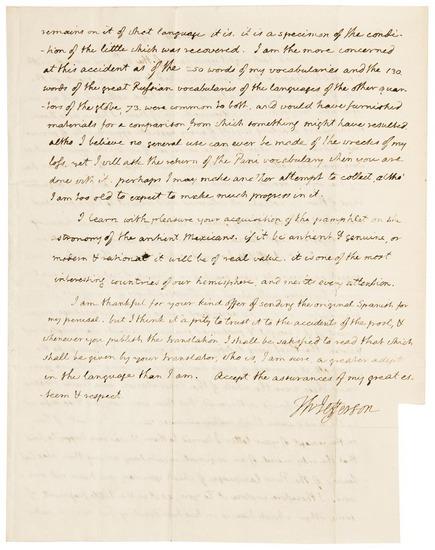 remains on it of what language it is. it is a specimen of the condi-
-tion of the little which was recovered. I am the more concerned
at this accident as of the 250 words of my vocabularies and the 130
words of the great Russian vocabularies of the languages of the other quar-
-ters of the globe, 73. were common to both, and would have furnished
materials for a comparison from which something might have resulted
altho I believe no general use can ever be made of the wrecks of my
loss, yet I will ask the return of the Pani vocabulary when you are
done with it. perhaps I may make another attempt to collect, altho'
I am too old to expect to make much progress in it.
I learn with pleasure your acquisition of the pamphlet on the
astronomy of the antient Mexicans. if it be antient & genuine, or
modern & rational it will be of real value. it is one of the most
interesting countries of our hemisphere, and merits every attention.
I am thankful for your kind offer of sending the original Spanish for
my perusal. but I think it a pity to trust it to the accidents of the post, &
whenever you publish the translation, I shall be satisfied to read that which
shall be given by your translator, who is, I am sure a greater adept
in the language than I am. Accept the assurances of my great es-
teem & respect
Th Jefferson